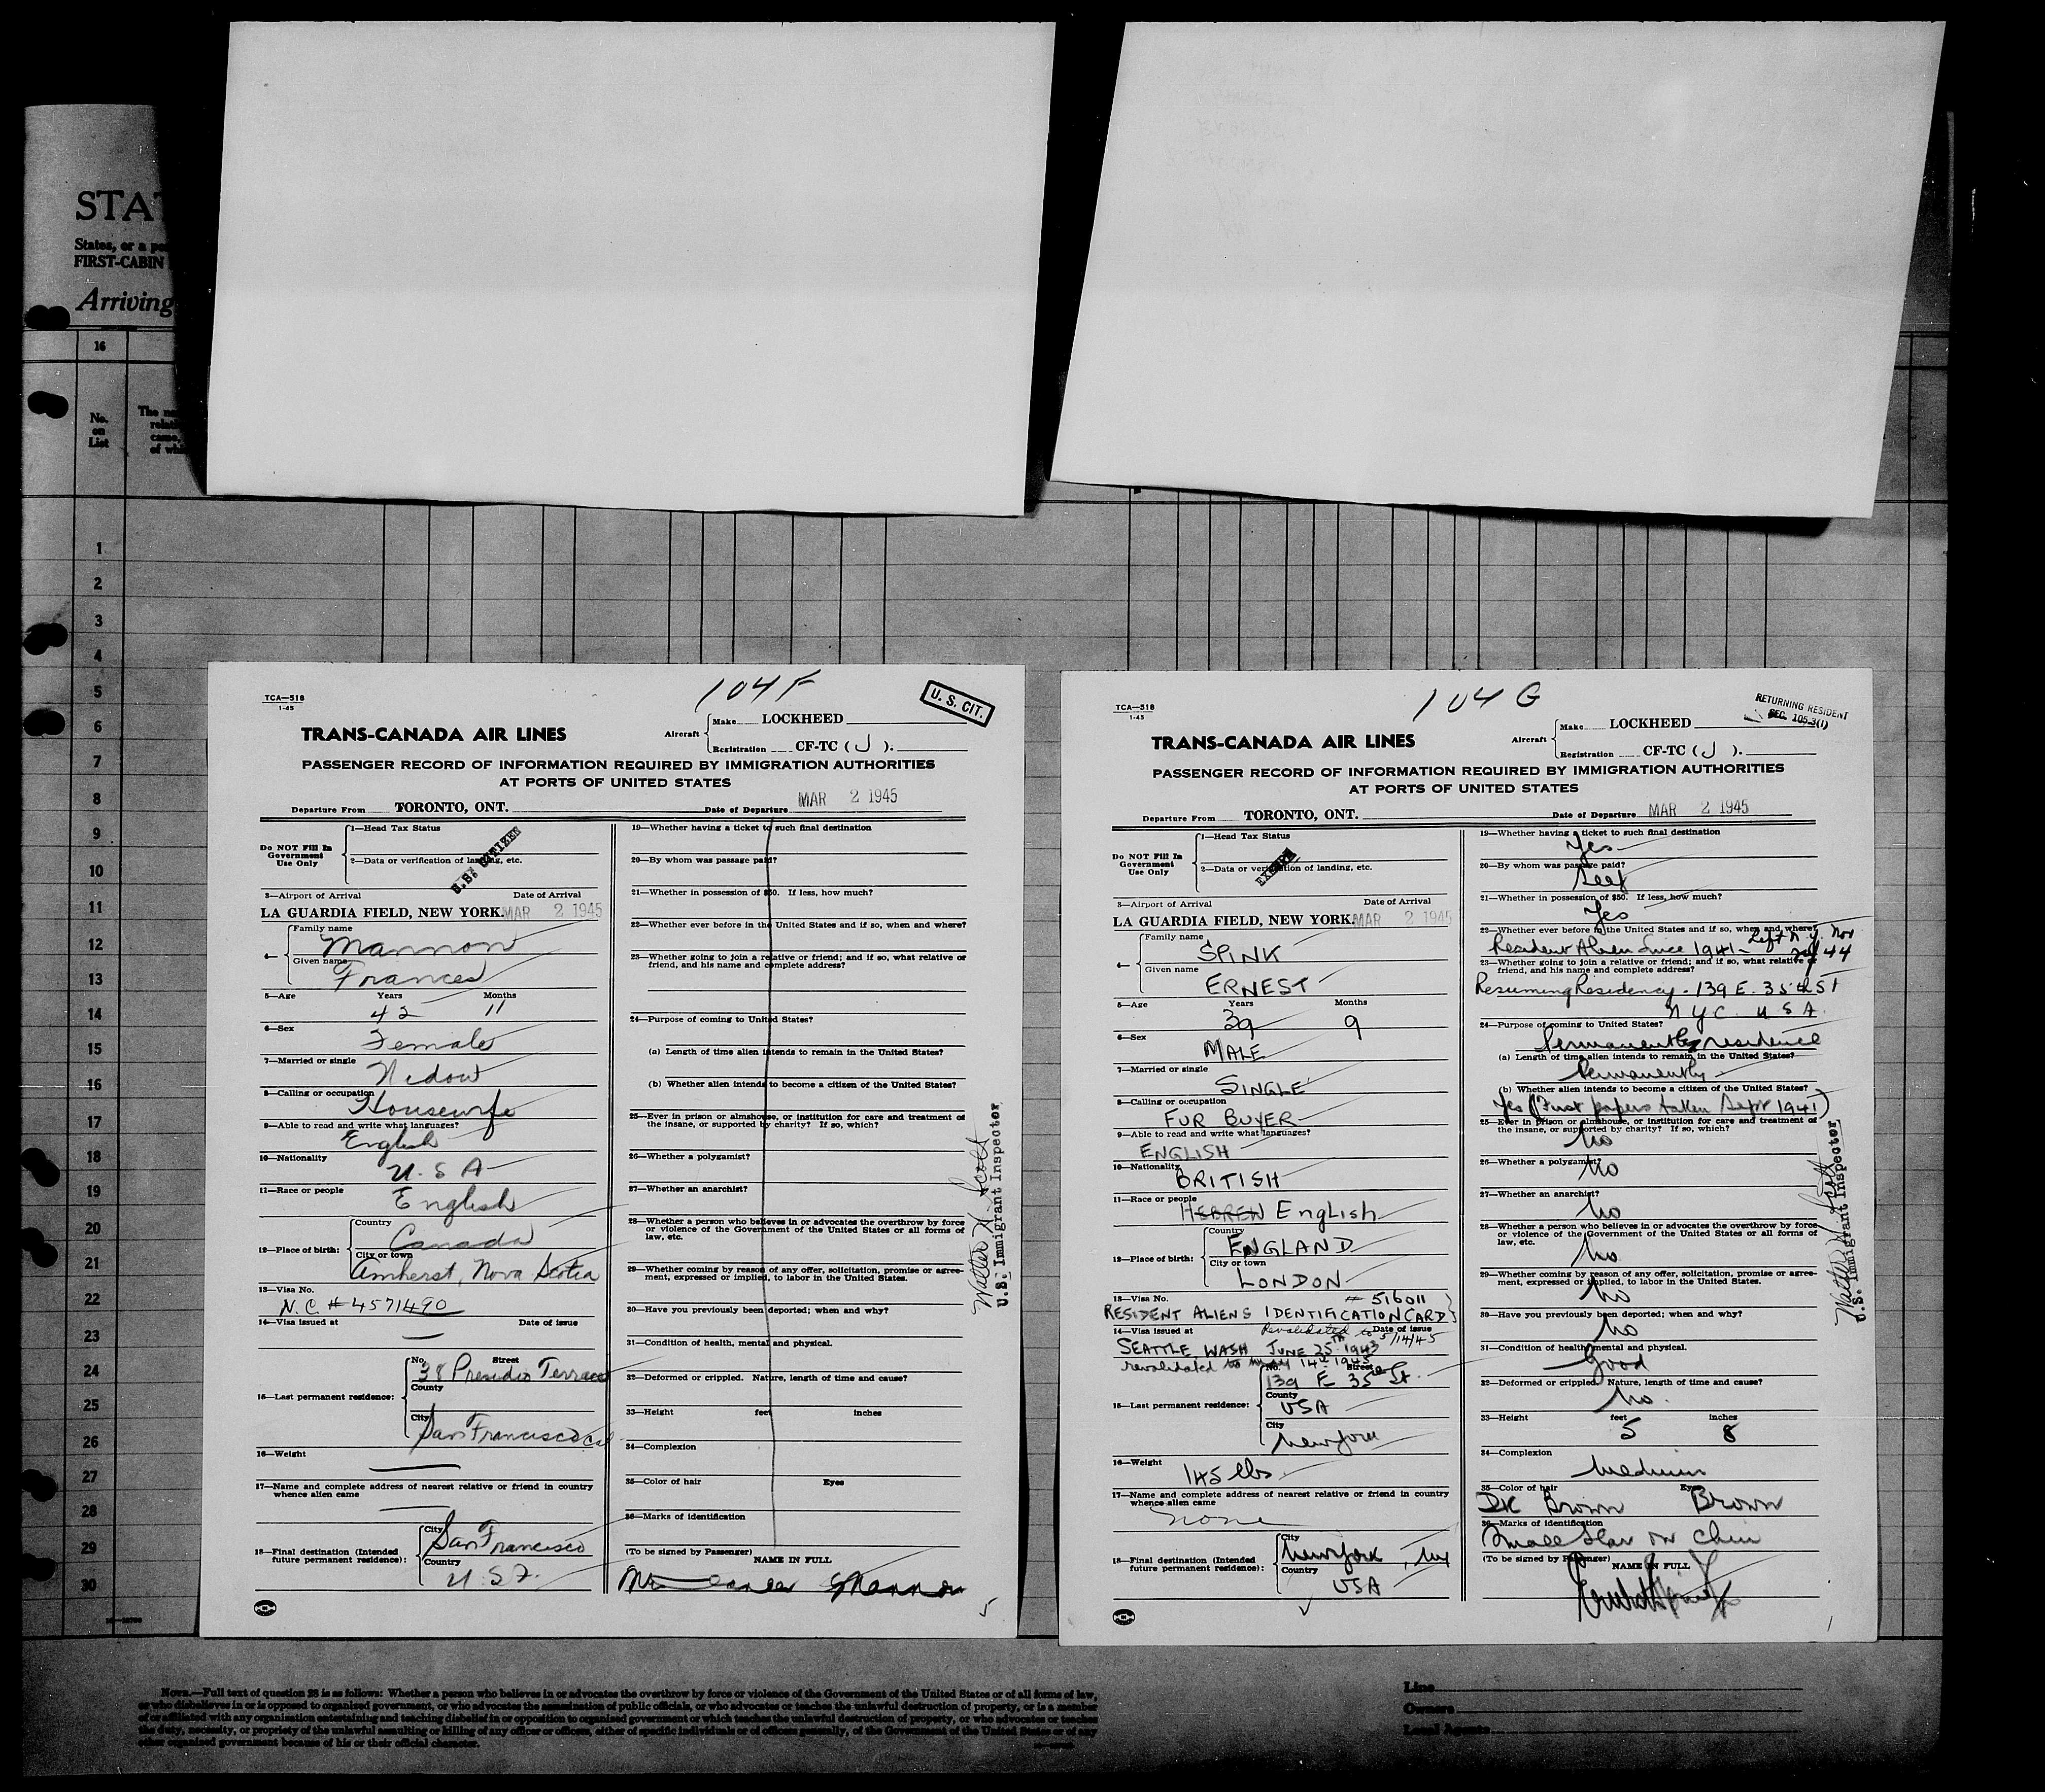 STAT
States, or a
FIRST-CABIN
Arriving
16
No.
on
List
1
2
3
4
5
6
7
8
9
10
11
12
13
14
15
16
17
18
19
20
21
22
23
24
25
26
27
28
29
30
104 F
TCA—518
1-45
U. S. CIT.
Make LOCKHEED
TRANS-CANADA AIR LINES
Aircraft
Registration CF-TC ( J ).
PASSENGER RECORD OF INFORMATION REQUIRED BY IMMIGRATION AUTHORITIES
AT PORTS OF UNITED STATES
Departure From TORONTO, ONT. Date of Departure MAR 2 1945
Do NOT Fill In
Government
Use Only
1—Head Tax Status
2—Data or verification of landing, etc.
U.S. CITIZEN
3—Airport of Arrival Date of Arrival
LA GUARDIA FIELD, NEW YORK. MAR 2 1945
4—
Family name
Mannon
Given name
Frances
5—Age Years Months
42 11
6—Sex
Female
7—Married or single
Widow
8—Calling or occupation
Housewife
9—Able to read and write what languages?
English
10—Nationality
U. S A
11—Race or people
English
12—Place of birth:
Country
Canada
City or town
Amherst, Nova Scotia
13—Visa No.
N.C. # 4571490
14—Visa issued at Date of issue
15—Last permanent residence:
No. Street
38 Presidio Terrace
County
City
San Francisco Cal
16—Weight
17—Name and complete address of nearest relative or friend in country
whence alien came
18—Final destination (Intended
future permanent residence):
City
San Francisco
Country
U.S.A.
19—Whether having a ticket to such final destination
20—By whom was passage paid?
21—Whether in possession of $50. If less, how much?
22—Whether ever before in the United States and if so, when and where?
23—Whether going to join a relative or friend; and if so, what relative or
friend, and his name and complete address?
24—Purpose of coming to United States?
(a) Length of time alien intends to remain in the United States?
(b) Whether alien intends to become a citizen of the United States?
25—Ever in prison or almshouse, or institution for care and treatment of
the insane, or supported by charity? If so, which?
26—Whether a polygamist?
27—Whether an anarchist?
28—Whether a person who believes in or advocates the overthrow by force
or violence of the Government of the United States or all forms of
law, etc.
29—Whether coming by reason of any offer, solicitation, promise or agree-
ment, expressed or implied, to labor in the United States.
30—Have you previously been deported; when and why?
31—Condition of health, mental and physical.
32—Deformed or crippled. Nature, length of time and cause?
33—Height feet inches
34—Complexion
35—Color of hair Eyes
36—Marks of identification
(To be signed by Passenger)
NAME IN FULL
Mannon
Walter H. Scott
U.S. Immigrant Inspector
5
104 G
TCA—518
1-45
RETURNING RESIDENT
SEC. 105.3(1)
Make LOCKHEED
TRANS-CANADA AIR LINES
Aircraft
Registration CF-TC ( J ).
PASSENGER RECORD OF INFORMATION REQUIRED BY IMMIGRATION AUTHORITIES
AT PORTS OF UNITED STATES
Departure From TORONTO, ONT. Date of Departure MAR 2 1945
Do NOT Fill In
Government
Use Only
1—Head Tax Status
2—Data or verification of landing, etc.
EXEMPT
3—Airport of Arrival Date of Arrival
LA GUARDIA FIELD, NEW YORK. MAR 2 1945
4—
Family name
SPINK
Given name
ERNEST
5—Age Years Months
39 9
6—Sex
MALE
7—Married or single
SINGLE
8—Calling or occupation
FUR BUYER
9—Able to read and write what languages?
ENGLISH
10—Nationality
BRITISH
11—Race or people
HEBREW English
12—Place of birth:
Country
ENGLAND
City or town
LONDON
13—Visa No. # 516011
RESIDENT ALIENS IDENTIFICATION CARD
14—Visa issued at Revalidated to 5/14/45 Date of issue
SEATTLE WASH JUNE 25TH 1943
revalidated to May 14th 1945
15—Last permanent residence:
No. Street
139 E 35th St.
County
USA
City
New York
16—Weight
145 lbs.
17—Name and complete address of nearest relative or friend in country
whence alien came
none
18—Final destination (Intended
future permanent residence):
City
New York, NY
Country
USA
19—Whether having ticket to such final destination
Yes
20—By whom was passage paid?
Self
21—Whether in possession of $50. If less, how much?
Yes
22—Whether ever before in the United States and if so, when and where?
Resident Alien Since 1941 - Left N.Y. Nov 44
23—Whether going to join a relative or friend; and if so, what relative or
friend, and his name and complete address?
Resuming Residency - 139 E. 35th ST
N Y C. U S A.
24—Purpose of coming to United States?
Permanently residence
(a) Length of time alien intends to remain in the United States?
Permanently
(b) Whether alien intends to become a citizen of the United States?
Yes (First papers taken Sept 1941)
25—Ever in prison or almshouse, or institution for care and treatment of
the insane, or supported by charity? If so, which?
No
26—Whether a polygamist?
No
27—Whether an anarchist?
No
28—Whether a person who believes in or advocates the overthrow by force
or violence of the Government of the United States or all forms of
law, etc.
No
29—Whether coming by reason of any offer, solicitation, promise or agree-
ment, expressed or implied, to labor in the United States.
No
30—Have you previously been deported; when and why?
No
31—Condition of health, mental and physical.
Good
32—Deformed or crippled. Nature, length of time and cause?
No.
33—Height feet inches
5 8
34—Complexion
Medium
35—Color of hair Eyes
DK Brown Brown
36—Marks of identification
Small Scar on Chin
(To be signed by Passenger)
NAME IN FULL
Ernest Spink
Walter H. Scott
U.S. Immigrant Inspector
1
NOTE.—Full text of question 28 is as follows: Whether a person who believes in or advocates the overthrow by force or violence of the Government of the United States or of all forms of law,
or who disbelieves in or is opposed to organized government, or who advocates the assassination of public officials, or who advocates or teaches the unlawful destruction of property, or is a member
of or affiliated with any organization entertaining and teaching disbelief in or opposition to organized government or which teaches the unlawful destruction of property, or who advocates or teaches
the duty, necessity, or propriety of the unlawful assaulting or killing of any officer or officers, either of specific individuals or of officers generally, of the Government of the United States or of any
other organized government because of his or their official character.
Line
Owners
Local Agents